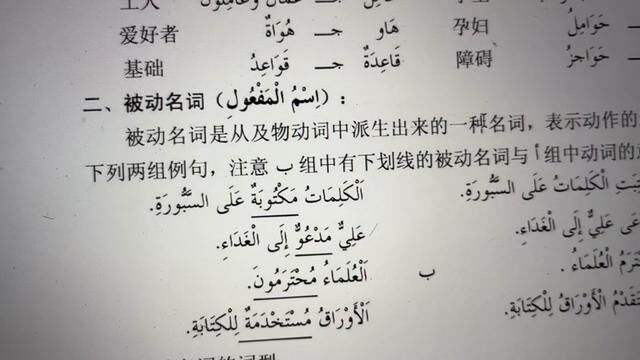 工人 عُمَّالٌ وَعَامِلُونَ
爱好者 هَاوٍ جـ هُوَاةٌ 孕妇 حَوَامِلُ
基础 قَاعِدَةٌ جـ قَوَاعِدُ 障碍 حَوَاجِزُ
二、被动名词（اِسْمُ الْمَفْعُولِ）：
被动名词是从及物动词中派生出来的一种名词，表示动作的
下列两组例句，注意 ب 组中有下划线的被动名词与 أ 组中动词的
اَلْكَلِمَاتُ مَكْتُوبَةٌ عَلَى السَّبُّورَةِ.
الْكَلِمَاتُ عَلَى السَّبُّورَةِ.
عَلِيٌّ مَدْعُوٌّ إِلَى الْغَدَاءِ.
عَلِيٌّ إِلَى الْغَدَاءِ.
ب اَلْعُلَمَاءُ مُحْتَرَمُونَ.
الْعُلَمَاءُ.
اَلْأَوْرَاقُ مُسْتَخْدَمَةٌ لِلْكِتَابَةِ.
الْأَوْرَاقُ لِلْكِتَابَةِ.